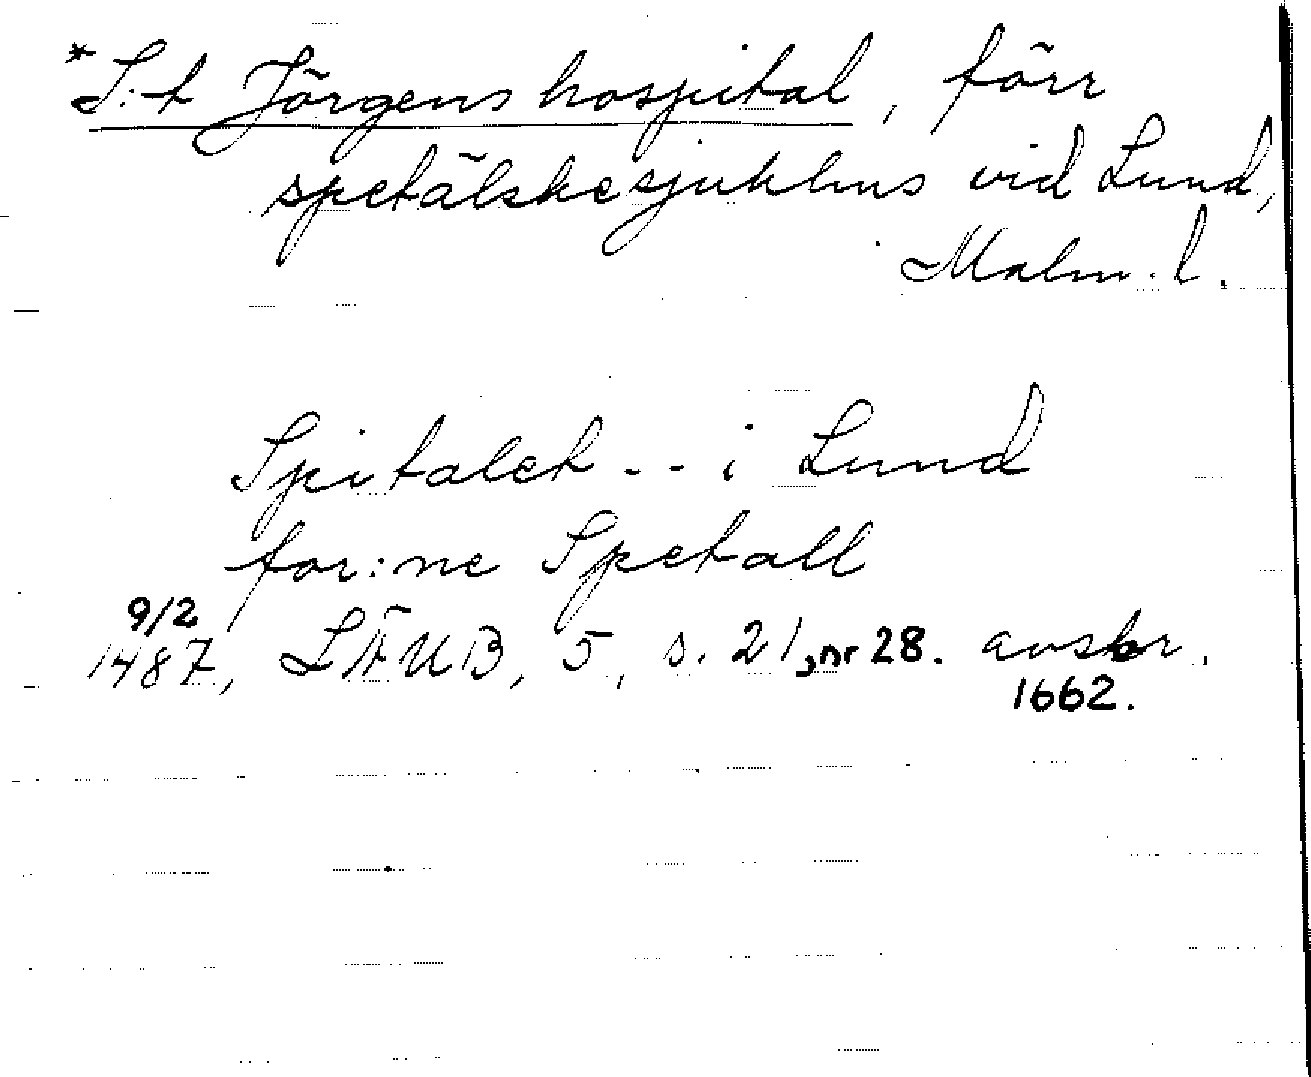 *S:t Jörgens hospital, förr
spetälskesjukhus vid Lund,
Malm. l.
Spitalet -- i Lund
for:ne Spetall
9/2
1487, LÄUB, 5, s. 21, nr 28. avskr.
1662.